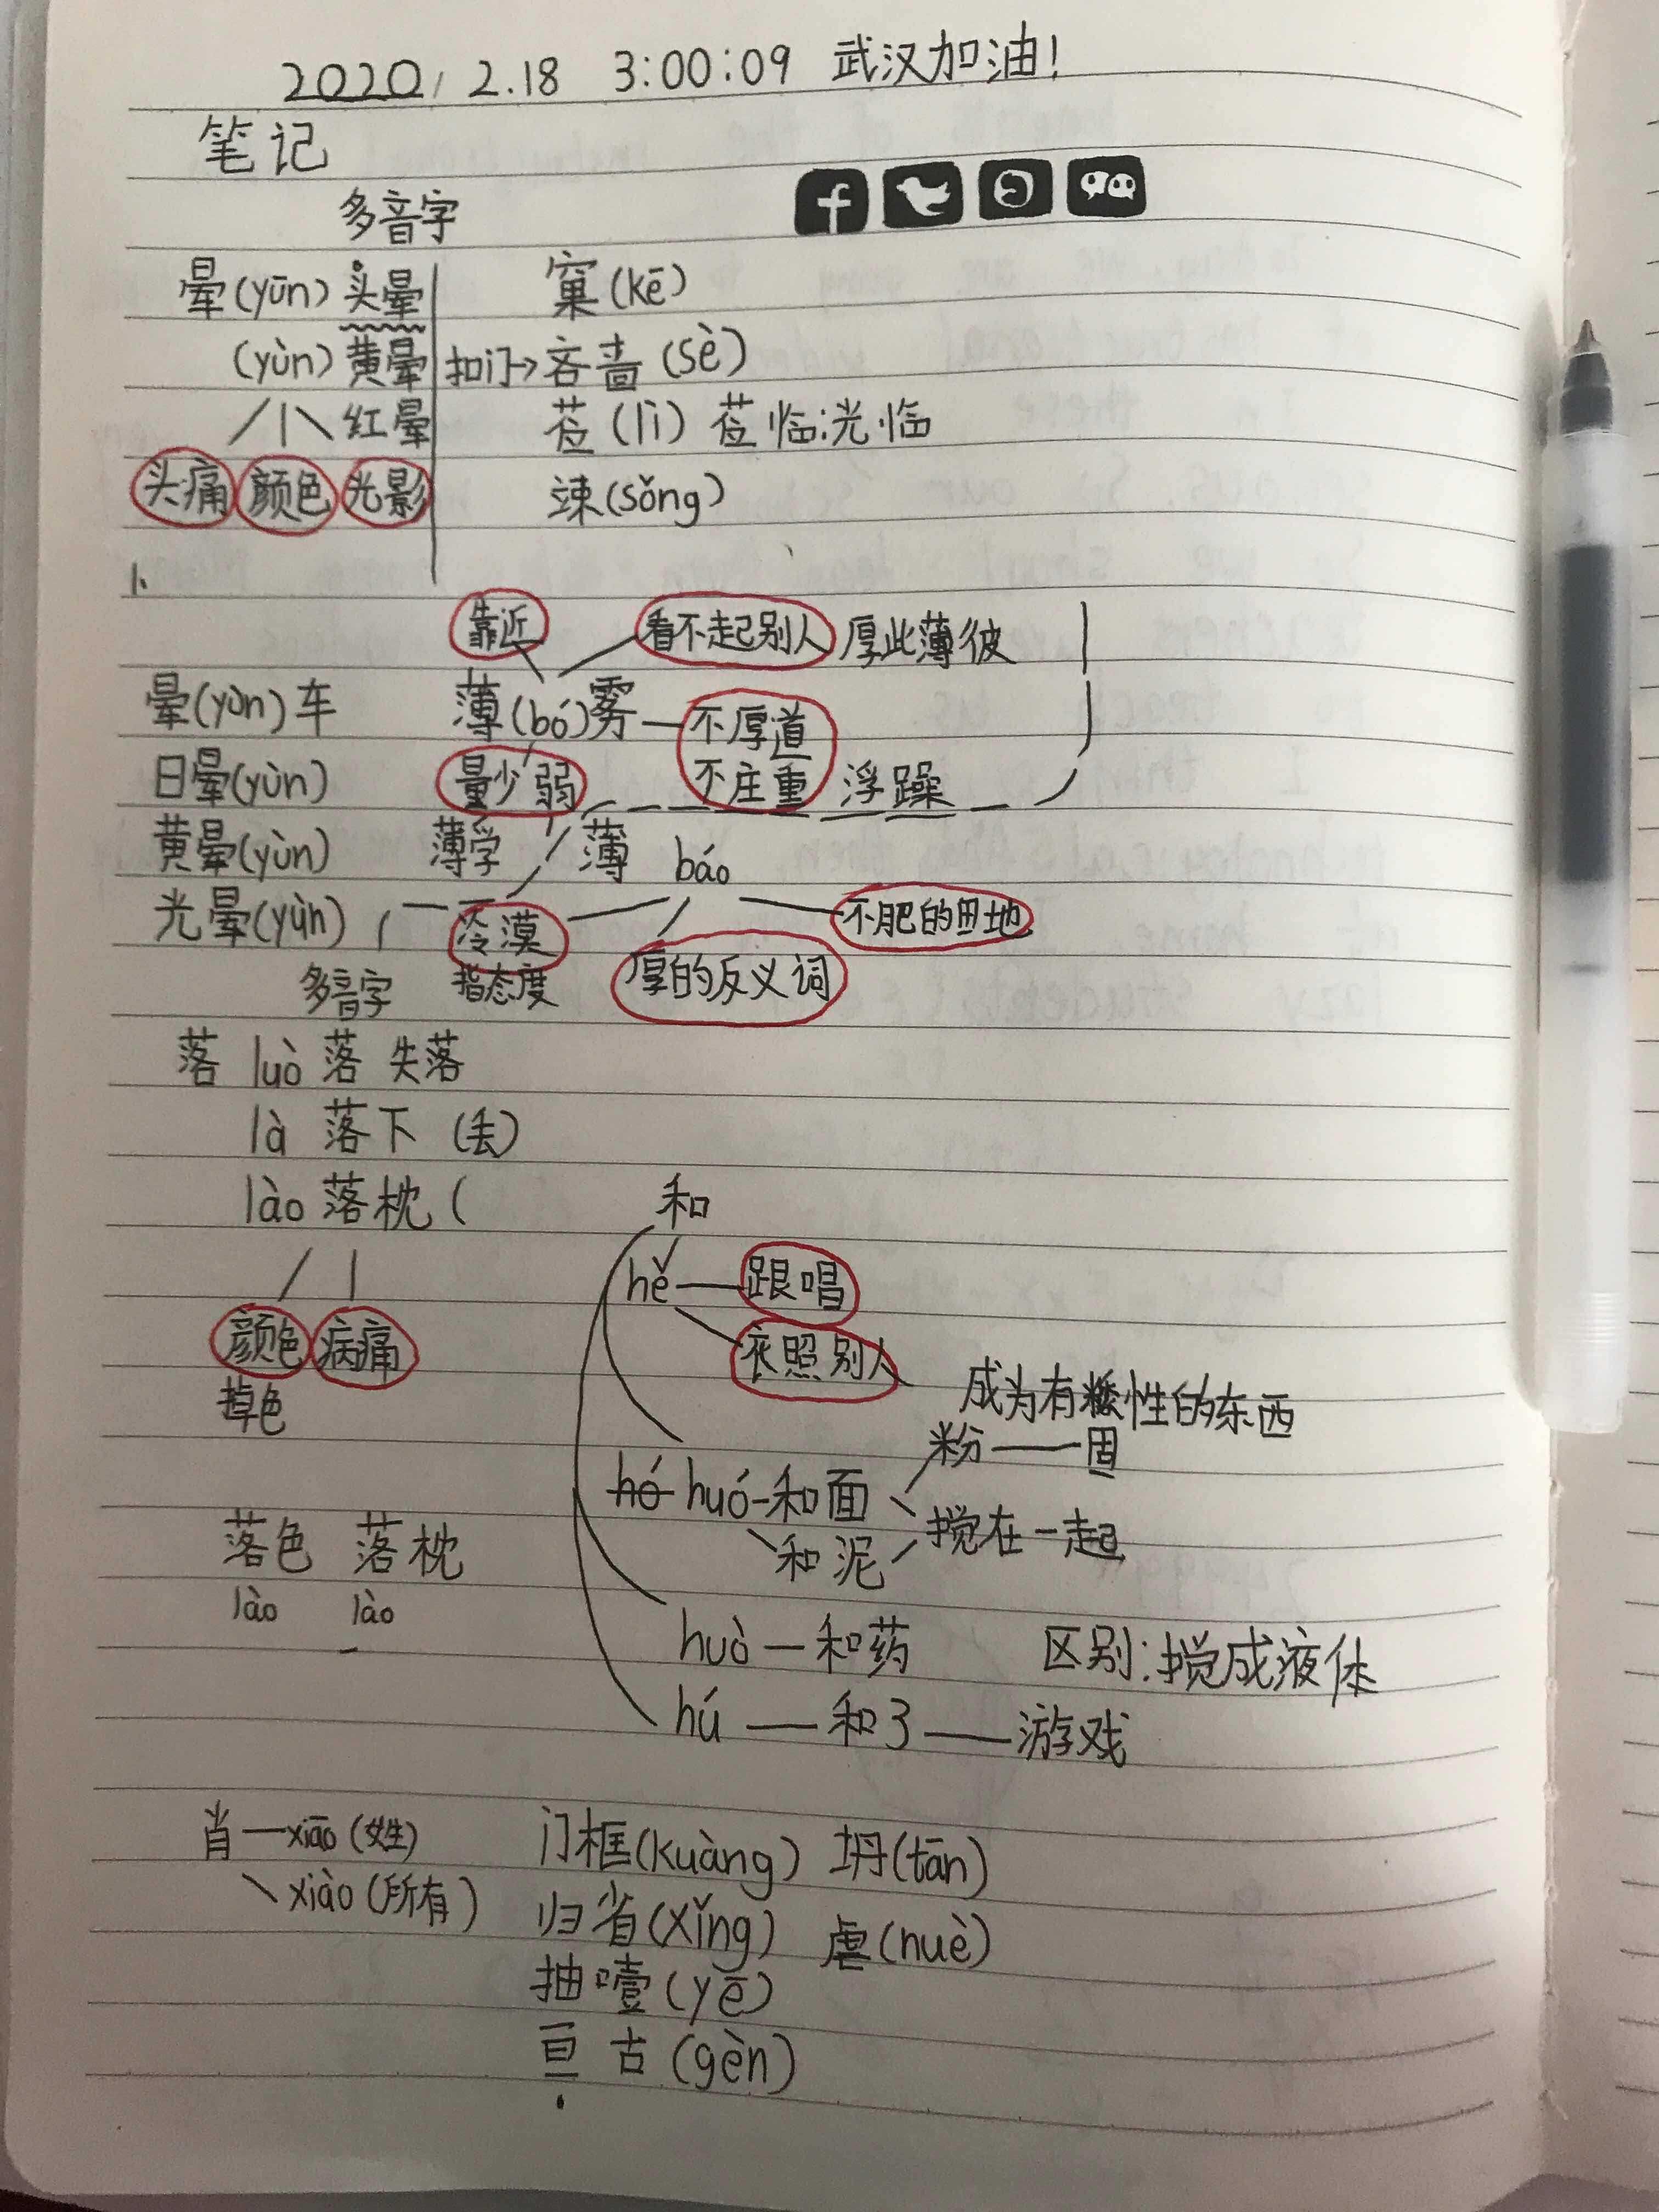 2020, 2.18 3:00:09 武汉加油!
笔记
多音字
晕(yūn) 头晕 窠(kē)
(yùn) 黄晕 扣门→吝啬(sè)
红晕 莅(lì) 莅临:光临
头痛 颜色 光影 竦(sǒng)
1.
靠近 看不起别人 厚此薄彼
晕(yùn)车 薄(bó)雾 不厚道
日晕(yùn) 量少 弱 不庄重 浮躁
黄晕(yùn) 薄学 薄 báo
光晕(yùn) 冷漠 不肥的田地
多音字 指态度 厚的反义词
落 luò 落 失落
là 落下 (丢)
lào 落枕 ( 和
hě 跟唱
颜色 病痛 依照别人
掉色 成为有黏性的东西
粉 固
hó huó 和面
落色 落枕 和泥 搅在一起
lào lào
huò 和药 区别:搅成液体
hú 和了 游戏
肖 xiāo (姓) 门框(kuàng) 坍(tān)
xiào (所有) 归省(xǐng) 虐(nuè)
抽噎(yē)
亘古(gèn)